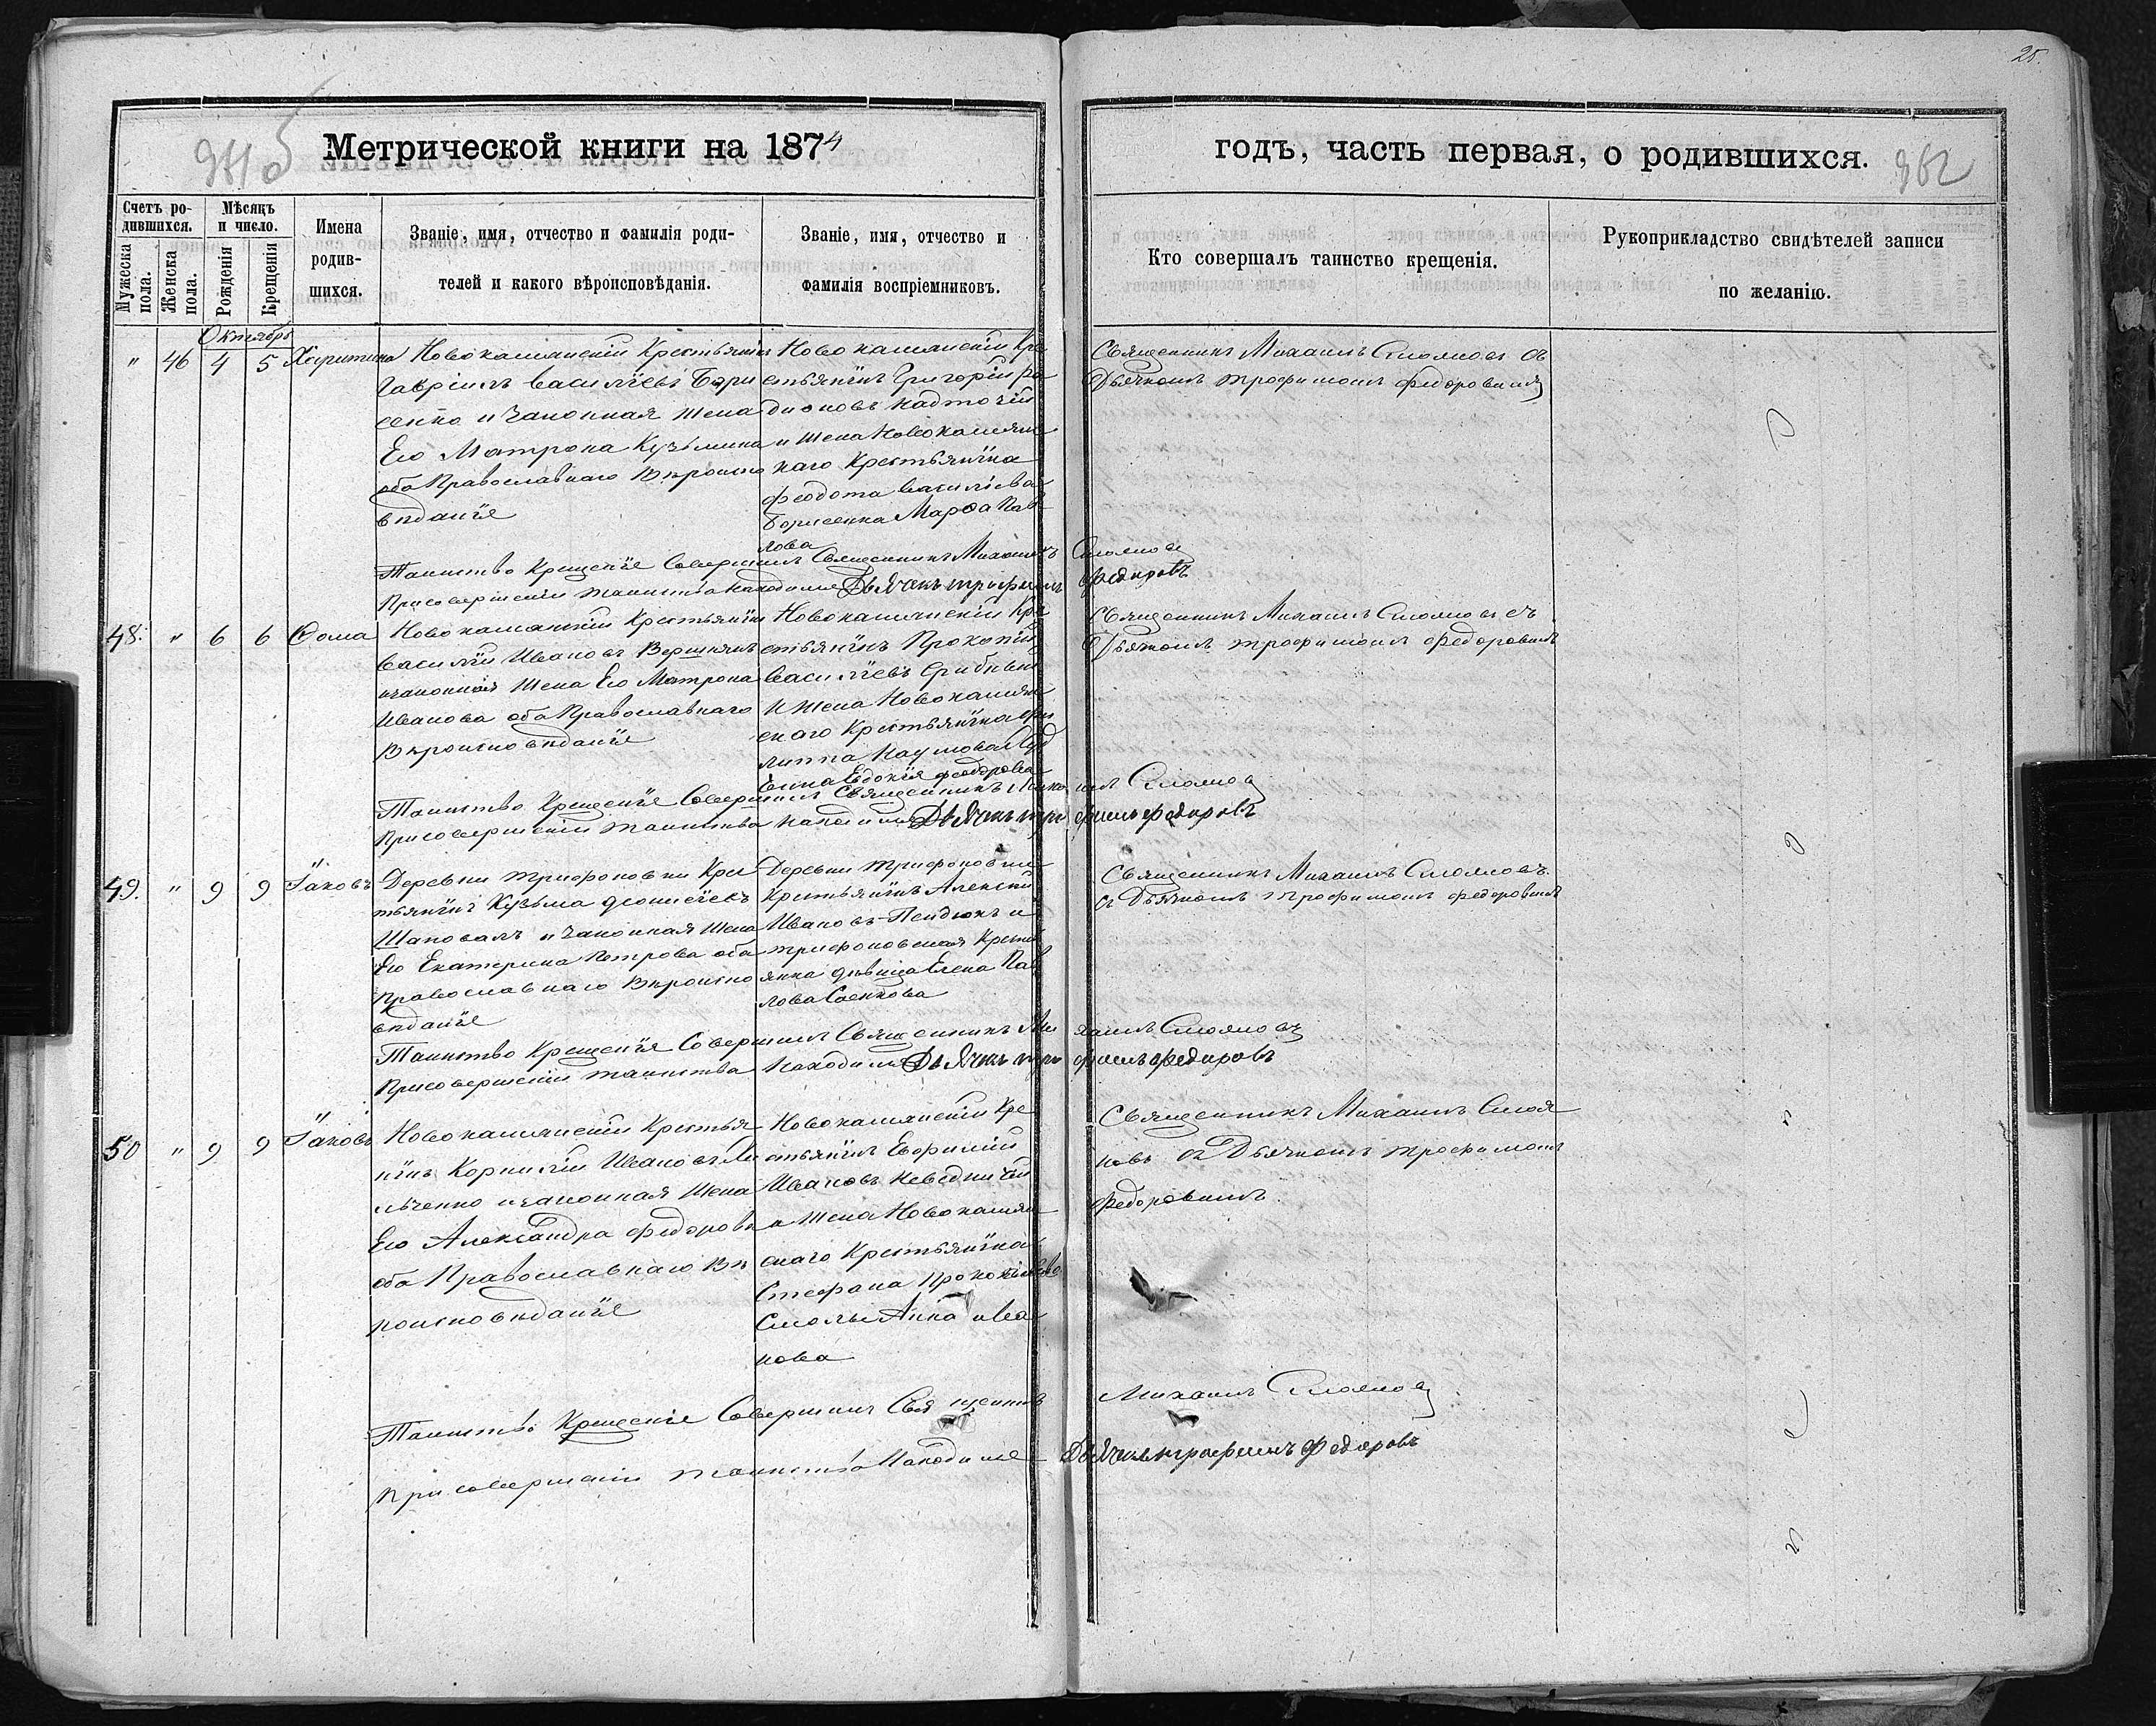 25.
Метрической книги на 1874
годъ, часть первая, о родившихся.
362
Счетъ родившихся.
Мѣсяцъ и число.
Мужеска пола.
Женска пола.
Рожденія
Крещенія
Имена родив-
шихся.
Званіе, имя, отчество и фамилія роди-
телей и какого вѣроисповѣданія.
Званіе, имя, отчество и
фамилія воспріемниковъ.
Кто совершалъ таинство крещенія.
Рукоприкладство свидѣтелей записи
по желанію.
Октябрь
" 46 4 5 Харитина
Новокамянскій Крестьянинъ
Гавріилъ Васильевъ Бори
сенко и законная жена
Его Матрона Кузьмина
оба Православнаго Вѣроиспо
вѣданіе
Новокамянскій Кре
стьянинъ Григорій Ро
дионовъ Надточій
и жена Новокамянс
каго Крестьянина
Феодота Васильева
Борисенка Марѳа Пав
лова
Священникъ Михаилъ Слояновъ съ
Дьячкомъ Трофимомъ Федоровымъ
Таинство Крещеніе Совершилъ Священникъ Михаилъ
При совершеніи таинства находился Дьячекъ Трофимъ Федоровъ
48. " 6 6 Ѳома
Новокамянскій Крестьянинъ
Василій Ивановъ
и законная жена Его Матрона
Иванова оба Православнаго
Вѣроисповѣданіе
Новокамянскій Кре
стьянинъ Прокопій
Васильевъ
и жена Новокамян
скаго Крестьянина Фи
липпа Наумова
Евдокія Феодорова
Священникъ Михаилъ съ
Дьячкомъ Трофимомъ Федоровымъ
Таинство Крещеніе Совершилъ Священникъ Михаилъ
При совершеніи таинства находился Дьячекъ Трофимъ Федоровъ
49. " 9 9 Іаковъ
Деревни Трифоновки Крес
тьянинъ Кузьма Деонисіевъ
Шаповалъ и законная жена
Его Екатерина Петрова оба
Православнаго Вѣроиспо
вѣданіе
Деревни Трифоновки
Крестьянинъ Алексѣй
Ивановъ Пендюкъ и
Трифоновская Кресть
янка дѣвица Елена Пав
лова Саенкова
Священникъ Михаилъ
съ Дьячкомъ Трофимомъ Федоровымъ
Таинство Крещенія Совершилъ Священникъ Михаилъ
При совершеніи таинства находился Дьячекъ Трофимъ Федоровъ
50 " 9 9 Іаковъ
Новокамянскій Крестья
нинъ Корнилій Ивановъ
и законная жена
Его Александра Федорова
оба Православнаго Вѣ
роисповѣданіе
Новокамянскій Кре
стьянинъ Евфимій
Ивановъ
и жена Новокамян
скаго Крестьянина
Стефана Прокопьева
Смолы Анна Ива
нова
Священникъ Михаилъ
съ Дьячкомъ Трофимомъ
Федоровымъ
Таинство Крещеніе Совершилъ Священникъ Михаилъ
При совершеніи таинства находился Дьячекъ Трофимъ Федоровъ